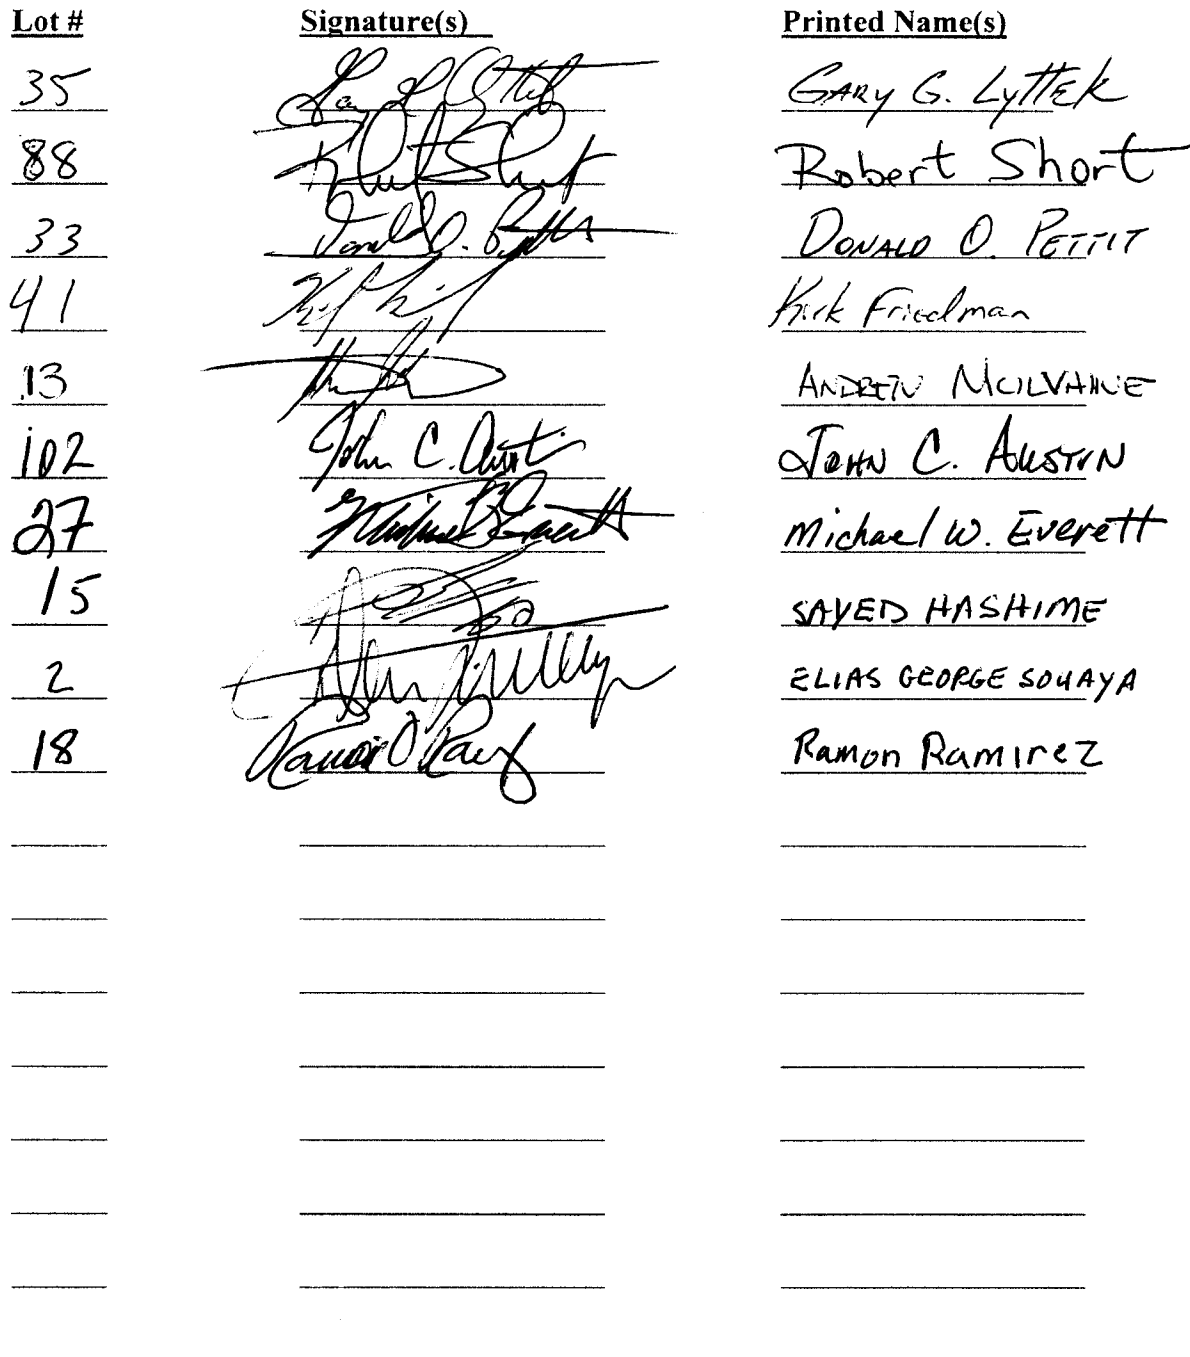 Lot # Signature(s) Printed Name(s)
35 GARY G. LYTTEK
88 Robert Short
33 Donald O. Pettit DONALD O. PETTIT
41 Kirk Friedman
13 ANDREW MCILVAINE
102 John C. Austin JOHN C. AUSTIN
27 Michael W. Everett
15 SAYED HASHIME
2 ELIAS GEORGE SOUAYA
18 Ramon Ramirez